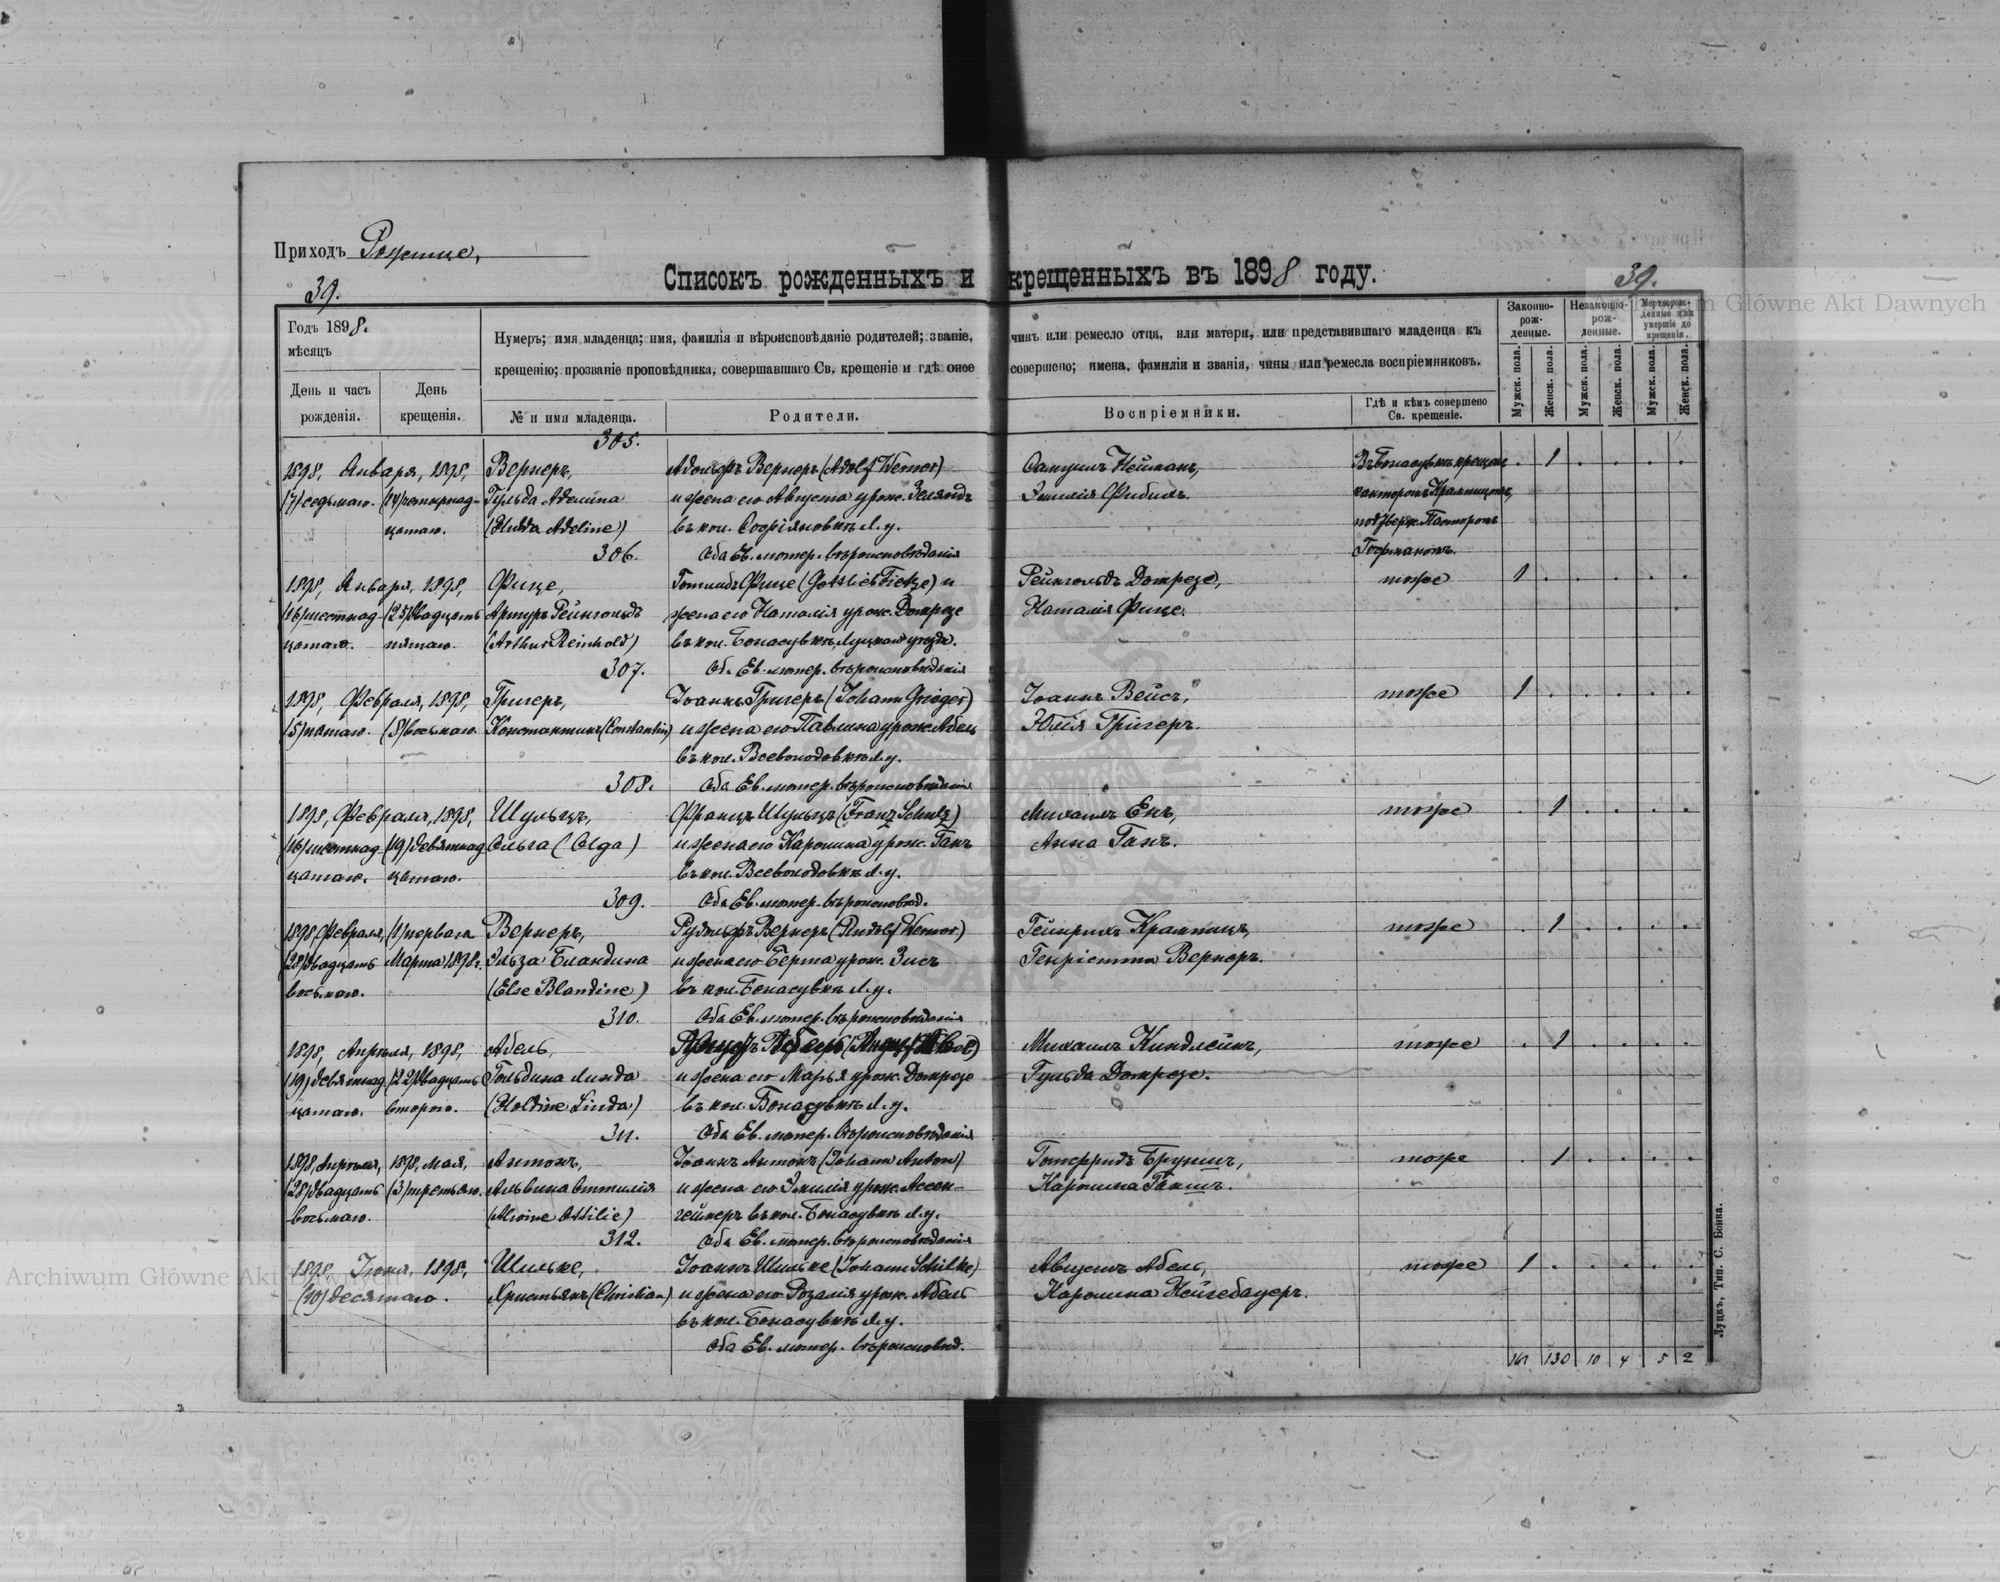 Приходъ Рожище,
Списокъ рожденныхъ и крещенныхъ въ 1898 году.
39.
39.
Годъ 1898.
мѣсяцъ
День и часъ рожденія.
День крещенія.
Нумеръ; имя младенца; имя, фамилія и вѣроисповѣданіе родителей; званіе, чинъ или ремесло отца, или матери, или представившаго младенца къ
крещенію; прозваніе проповѣдника, совершавшаго Св. крещеніе и гдѣ оное совершено; имена, фамиліи и званія, чины или ремесла воспріемниковъ.
№ и имя младенца.
Родители.
Воспріемники.
Гдѣ и кѣмъ совершено Св. крещеніе.
Законно-рож-денные.
Незаконно-рож-денные.
Мертворож-денные или умершіе до крещенія.
Мужск. пола.
Женск. пола.
Мужск. пола.
Женск. пола.
Мужск. пола.
Женск. пола.
305.
1898, Января, 1898, Вернеръ, Адольфъ Вернеръ (Adolf Werner) Самуилъ Нейманъ, Въ Бонасувкѣ крещен. . 1 . . . .
(7) седьмаго. (14) четырнад- Гульда Аделина и жена его Августа урож. Зеландъ Эмилія Фибихъ. канторомъ Крампицомъ,
цатаго. (Hulda Adeline) въ кол. Софіяновкѣ Л. у. подтверж. Пасторомъ
306. Оба Ев. лютер. вѣроисповѣданія Гофманомъ.
1898, Января, 1898, Фице, Готлибъ Фице (Gottlieb Fietze) и Рейнгольдъ Домрезе, тоже 1 . . . . .
(16) шестнад- (25) двадцать Артуръ Рейнгольдъ жена его Наталія урож. Домрезе Наталія Фице.
цатаго. пятаго. (Arthur Reinhold) въ кол. Бонасувкѣ, Луцкаго уѣзда.
307. Об. Ев. лютер. вѣроисповѣданія
1898, Февраля, 1898, Григеръ, Іоаннъ Григеръ (Johann Grieger) Іоаннъ Вейсъ, тоже 1 . . . . .
(5) пятаго. (8) восьмаго. Константинъ (Constantin) и жена его Павлина урож. Абель Юлія Григеръ.
въ кол. Всеволодовкѣ Л. у.
308. Оба Ев. лютер. вѣроисповѣданія
1898, Февраля, 1898, Шульцъ, Францъ Шульцъ (Franz Schulz) Михаилъ Енъ, тоже . 1 . . . .
(16) шестнад- (19) девятнад- Ольга (Olga) и жена его Каролина урож. Ганъ Анна Ганъ.
цатаго. цатаго. въ кол. Всеволодовкѣ Л. у.
309. Оба Ев. лютер. вѣроисповѣд.
1898, Февраля, (1) перваго Вернеръ, Рудольфъ Вернеръ (Rudolf Werner) Гейнрихъ Крампицъ, тоже . 1 . . . .
(28) двадцать Марта 1898 г. Эльза Бландина и жена его Берта урож. Зисъ Генріетта Вернеръ.
восьмаго. (Else Blandine) въ кол. Бонасувкѣ Л. у.
310. Оба Ев. лютер. вѣроисповѣданія
1898, Апрѣля, 1898, Абель, Михаилъ Киндлейнъ, тоже . 1 . . . .
(19) девятнад- (22) двадцать Гольдина Линда и жена его Марья урож. Домрезе Гульда Домрезе.
цатаго. второго. (Holdine Linda) въ кол. Бонасувкѣ Л. у.
311. Оба Ев. лютер. вѣроисповѣданія
1898, Апрѣля, 1898, Мая, Антонъ, Іоаннъ Антонъ (Johann Anton) Готфридъ Брунш, тоже . 1 . . . .
(28) двадцать (3) третьяго. Альвина Оттилія и жена его Эмилія урож. Ассен- Каролина
восьмаго. (Alwine Ottilie) геймеръ въ кол. Бонасувкѣ Л. у.
312. Оба Ев. лютер. вѣроисповѣданія
1898, Іюня, 1898, Шильке, Іоаннъ Шильке (Johann Schilke) Августъ Абель, тоже 1 . . . . .
(10) десятаго. Христьянъ (Christian) и жена его Розалія урож. Абель Каролина Нейгебауеръ.
въ кол. Бонасувкѣ Л. у.
Оба Ев. лютер. вѣроисповѣд.
161 130 10 4 5 2
Луцкъ, Тип. С. Бонка.
Archiwum Główne Akt Dawnych
Archiwum Główne Akt Dawnych